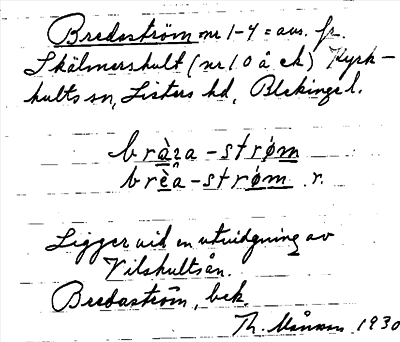 Bredaström nr 1-4 = avs. fr.
Skälmershult (nr 10 å ek) Kyrk-
hults sn, Listers hd, Blekinge l.
bràɿa-strǿm
brèâ-strǿm .r.
Ligger vid en utvidgning av
Vilshultsån.
Bredaström, bek.
Th. 1930